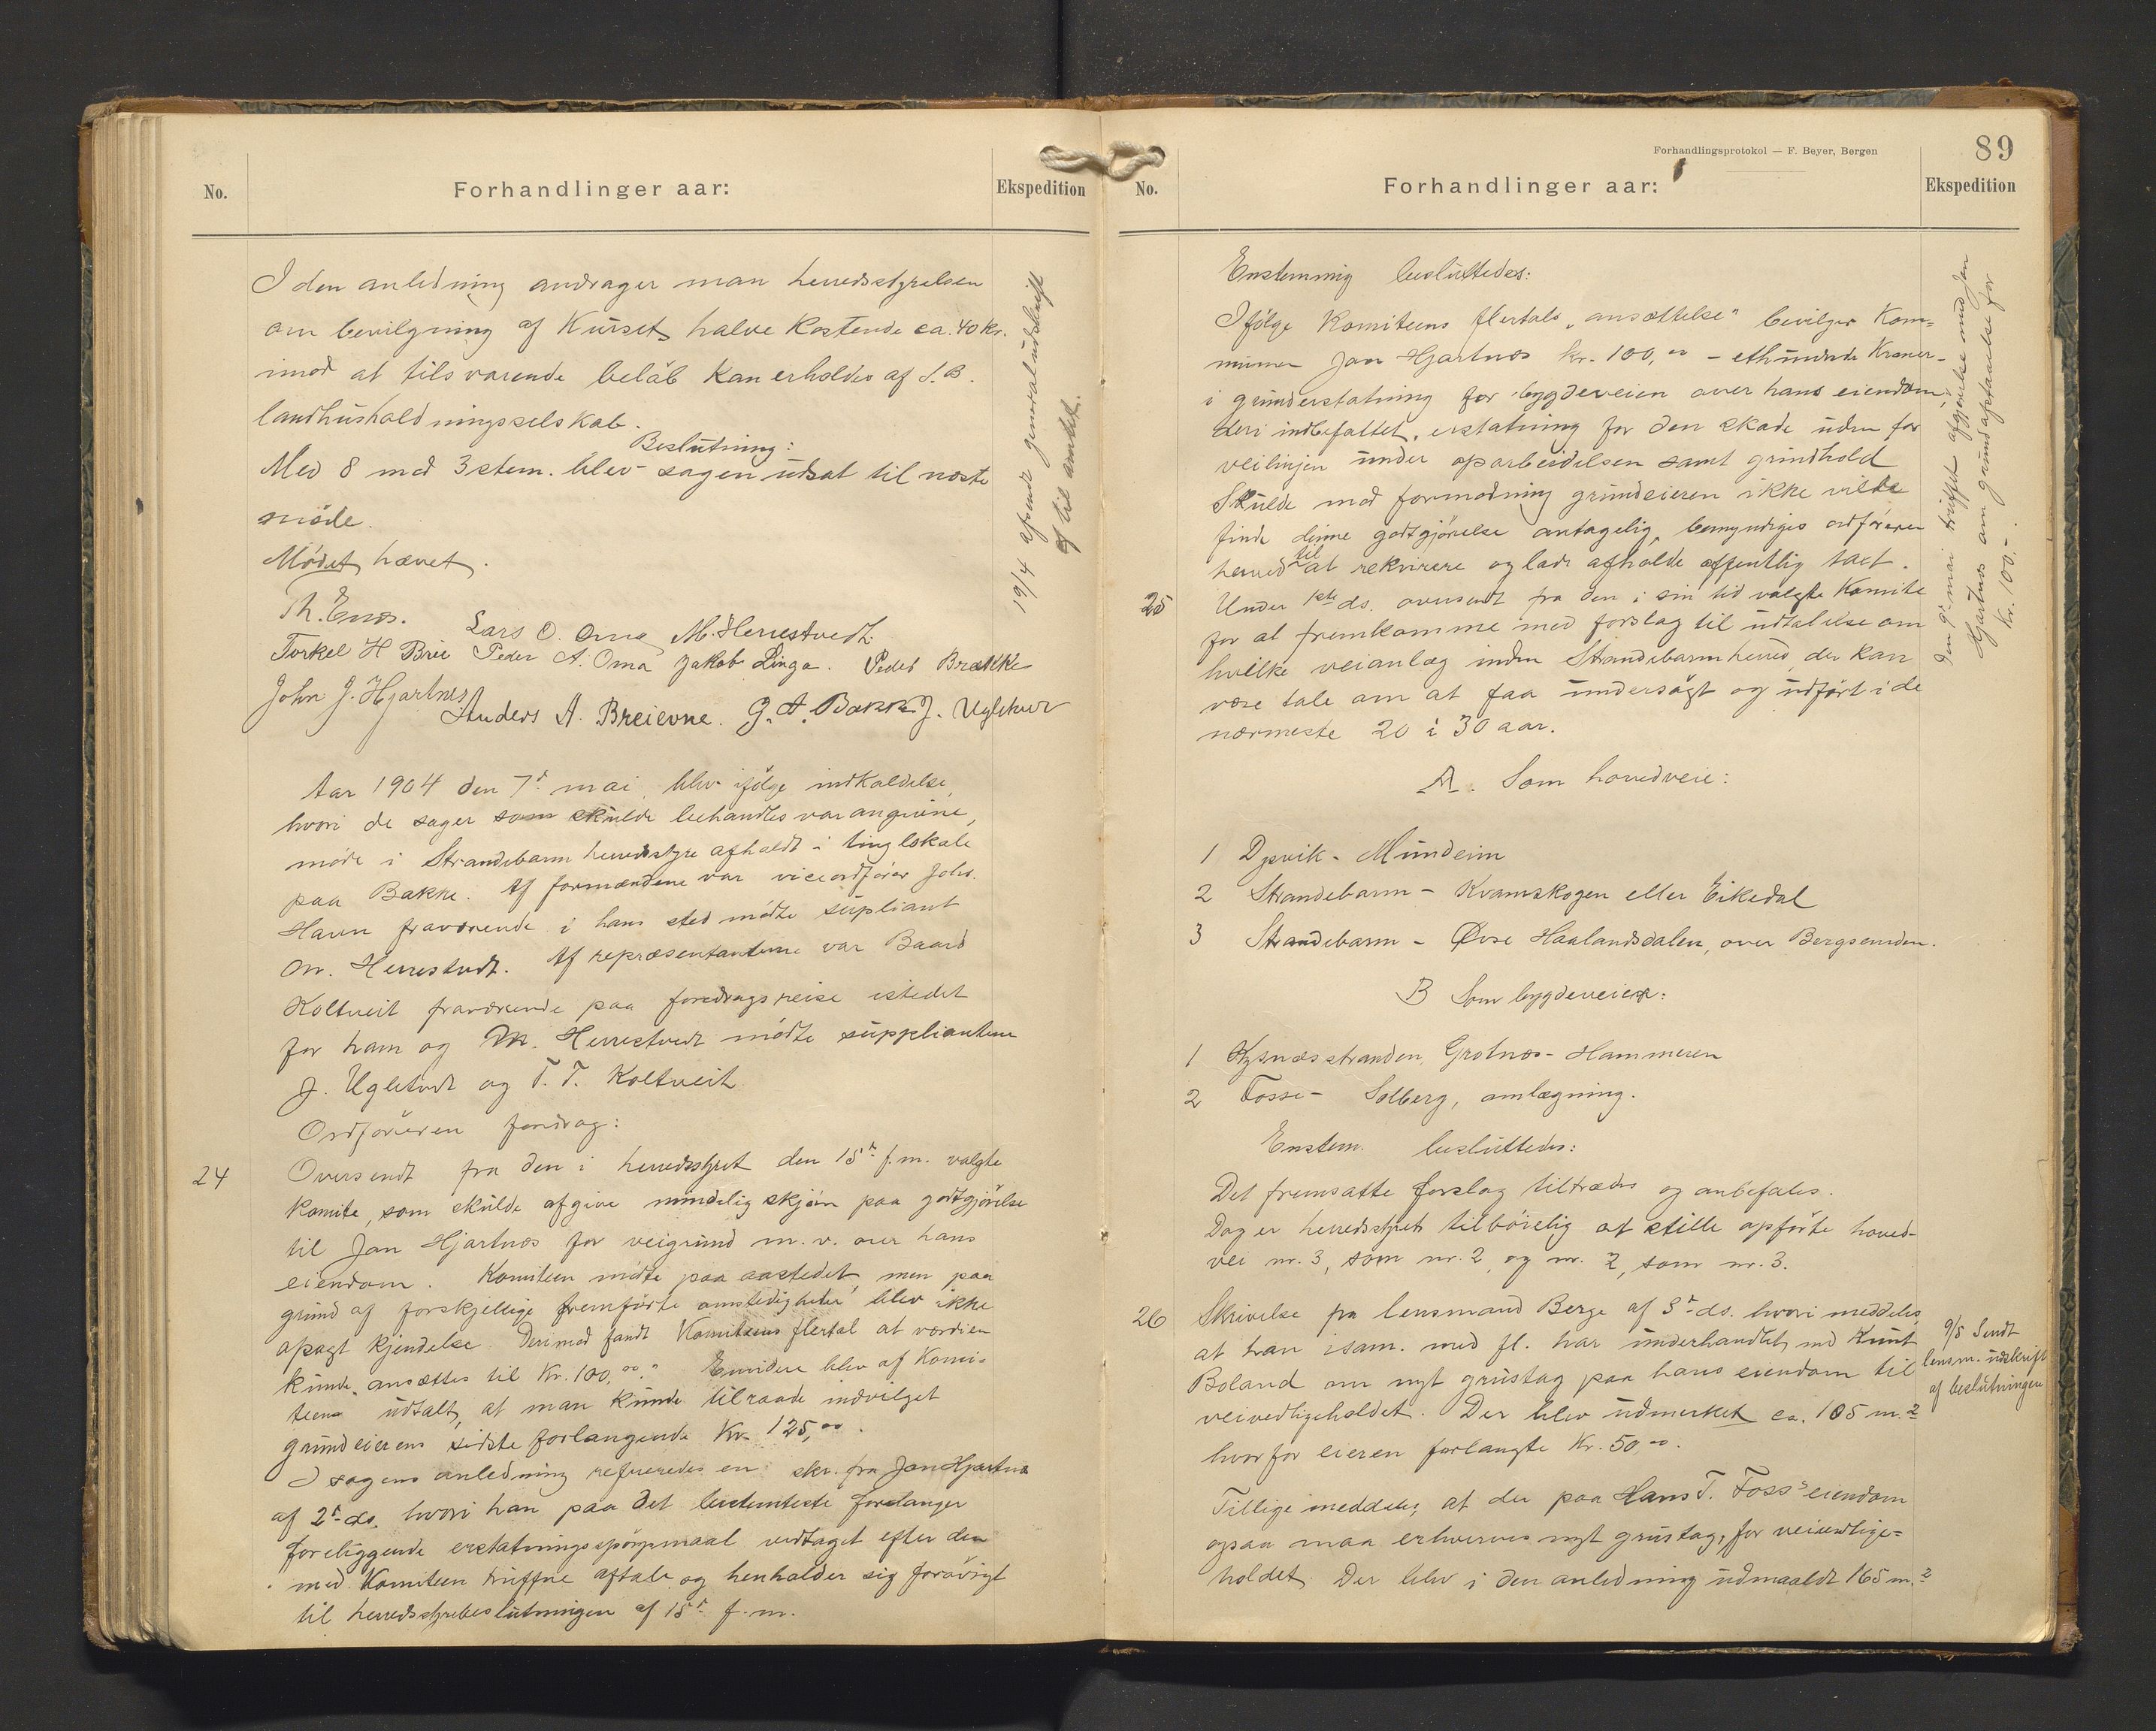 No.
Forhandlinger aar:
Ekspedition
I den anledning andrager man herredsstyrelsen
om bevilgning af Kursets halve Kostende ca. 40 kr.
imod at tilsvarende beløb kan erholdes af S.B.
landhusholdningsselskab.
Beslutning:
Med 8 mod 3 stem. blev sagen udsat til næste
møde.
Mødet hævet.
Th. Enæs.
Lars O. Oma
M. Herrestvedt.
Torkel H Brei
Peder A. Oma
Jakob Linga.
Peder Brække
John J. Hjartnes
Anders A. Breievne.
G. A. Bakke
J. Uglehus
19/4 afsendt genpart udskrift
af til amtet.
Aar 1904 den 7d mai blev ifølge indkaldelse,
hvori de sager som skulde behandles var angivne,
møde i Strandebarm herredsstyre afholdt i tinglokale
paa Bakke. Af formændene var viceordfører Johs.
Havn fraværende i hans sted mødte supliant
M. Herrestvedt. Af repræsentanterne var Baard
Koltveit fraværende paa foredragsreise istedet
for ham og M. Herrestvedt mødte suppliantene
J. Ugletvedt og T. T. Koltveit
Ordføreren foredrog:
24
Oversendt fra den i herredsstyret den 15d f.m. valgte
Komite, som skulde afgive mindelig skjøn paa godtgjørelse
til Jan Hjartnæs for veigrund m. v. over hans
eiendom. Komiteen mødte paa aastedet, men paa
grund af forskjellige fremførte omstedigheder blev ikke
afsagt kjendelse. Derimod fandt Komiteens flertal at værdien
kunde „ansættes til Kr. 100,00." Emidere blev af Komi-
teens udtalt, at man kunde tilraade indvilget
grundeierens sidste forlangende Kr. 125,00.
I sagens anledning refereredes en skr. fra Jan Hjartnæs
af 2d ds. hvori han paa det bestemteste forlanger
foreliggende erstatningsspørgsmaal vedtaget efter den
med Komiteen trufne aftale og henholder sig forøvrigt
til herredsstyrebeslutningen af 15d f. m.
Forhandlingsprotokol — F. Beyer, Bergen
89
No.
Forhandlinger aar:
Ekspedition
Enstemmig besluttedes:
Ifølge Komiteens flertals „ansættelse" bevilger Kom-
munen Jan Hjartnæs kr. 100,00 - ethundrede Kroner-
i grunderstatning for bygdeveien over hans eiendom,
deri indbefattet, erstatning for den skade uden for
veilinjen under oparbeidelsen samt grindhold
Skulde mod formodning grundeieren ikke vilde
finde denne godtgjørelse antagelig, bemyndiges ordføreren
herved til at rekvirere og lade afholde offentlig taxt.
Den 9d mai truffet afgjørelse med Jan
Hjartnæs om grundafstaaelse for
Kr. 100.-
25
Under 1ste ds. oversendt fra den i sin tid valgte Komite
for at fremkomme med forslag til udtalelse om
hvilke veianlæg inden Strandebarm herred, der kan
være tale om at faa undersøgt og udført i de
nærmeste 20 à 30 aar.
A. Som hovedveie:
1 Dysvik - Mundeim
2 Strandebarm - Kvamskogen eller Eikedal
3 Strandebarm - Øvre Haalandsdalen, over Bergsenden.
B Som bygdeveier:
1 Kysnæsstranden, Grotnæs - Hammeren
2 Fosse - Solberg, omlægning.
Enstem. besluttedes:
Det fremsatte forslag tiltrædes og anbefales.
Dog er herredsstyret tilbøielig at stille opførte hoved-
vei nr. 3, som nr. 2, og nr. 2, som nr. 3.
26
Skrivelse fra lensmand Berge af 3d ds. hvori meddeles
at han isam. med fl. har underhandlet med Knut
Boland om nyt grustag paa hans eiendom til
veivedligeholdet. Der blev udmerket ca. 105 m.2
hvorfor eieren forlangte Kr. 50,00.
9/5 Sendt
lensm. udskrift
af beslutningen
Tillige meddeles, at der paa Hans T. Foss's eiendom
ogsaa maa erhverves nyt grustag, for veivedlige-
holdet. Der blev i den anledning udmaaldt 165 m.2